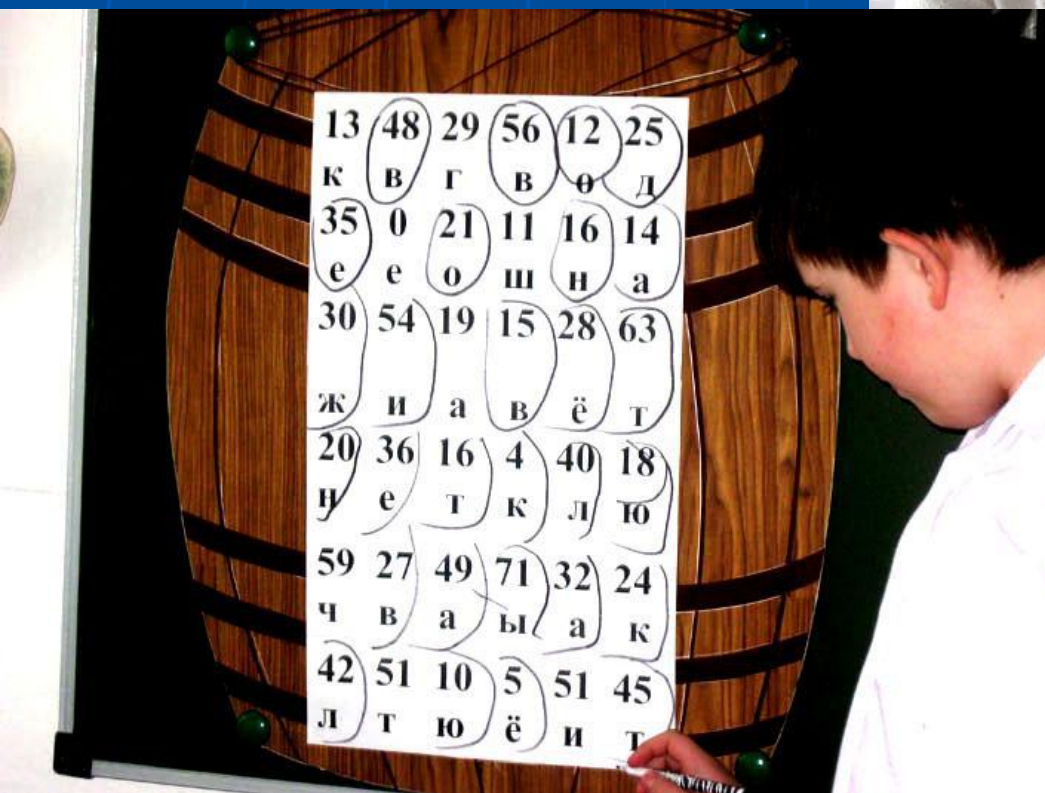 13 48 29 56 12 25
к в г в о д
35 0 21 11 16 14
е е о ш н а
30 54 19 15 28 63
ж и а в ё т
20 36 16 4 40 18
н е т к л ю
59 27 49 71 32 24
ч в а ы а к
42 51 10 5 51 45
л т ю ё и т